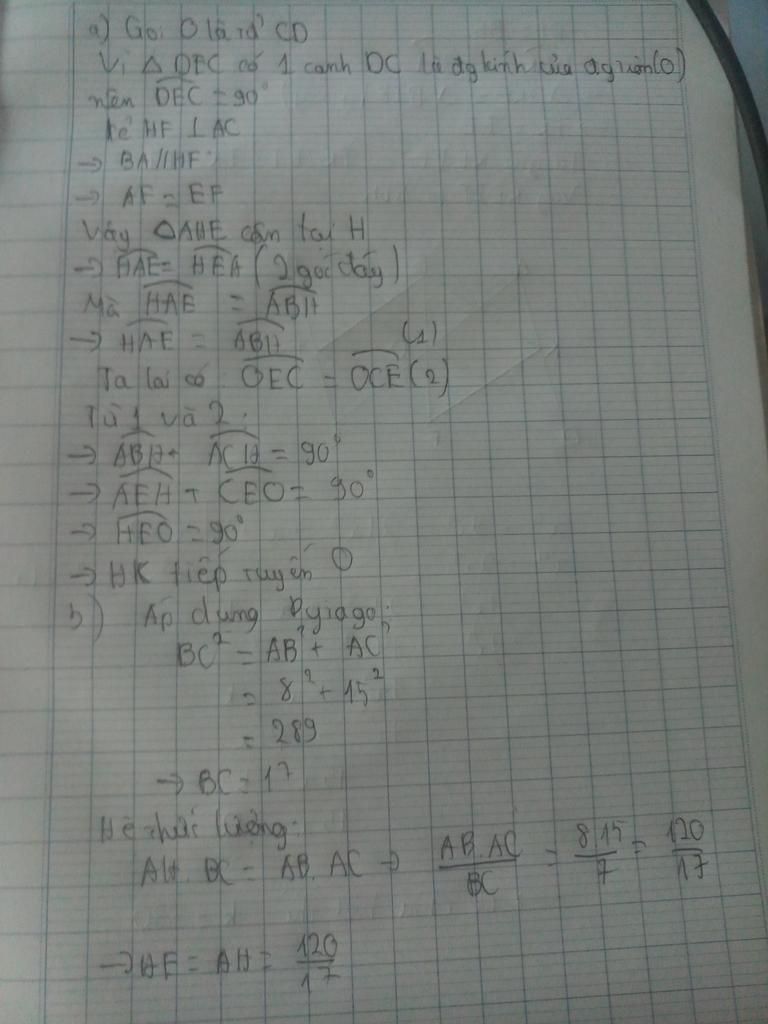 a) Gọi O là tđ CD
Vì △ DEC có 1 cạnh DC là đg kính của đg tròn (O)
nên DEC = 90°
kẻ HF ⊥ AC
→ BA // HF
→ AF = EF
Vậy △AHE cân tại H
→ HAE = HEA (2 góc đáy)
Mà HAE = ABH
→ HAE = ABH (1)
Ta lại có OEC = OCE (2)
Từ 1 và 2:
→ ABH + ACH = 90°
→ AEH + CEO = 90°
→ HEO = 90°
→ HK tiếp tuyến O
b) Áp dụng Pytago:
BC² = AB² + AC²
= 8² + 15²
= 289
→ BC = 17
Hệ thức lượng:
AH. BC = AB. AC → AB.AC/BC = 8.15/7 = 120/17
→ HE = AH = 120/17